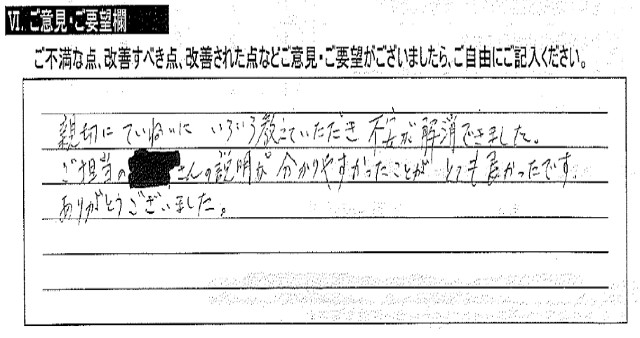 Ⅵ. ご意見・ご要望欄
ご不満な点、改善すべき点、改善された点などご意見・ご要望がございましたら、ご自由にご記入ください。
親切にていねいに いろいろ教えていただき 不安が解消できました。
ご担当の さんの説明が 分かりやすかったことが とても良かったです。
ありがとうございました。